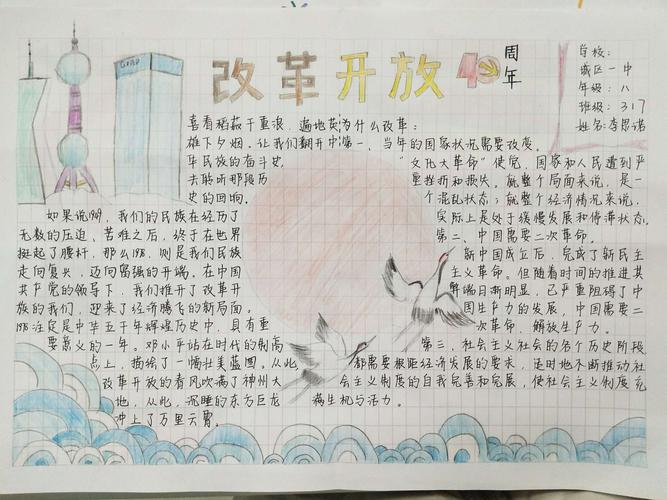 改革开放40周年
学校:
城区一中
年级:八
班级:317
姓名:李思诺
喜看稻菽千重浪,遍地英
雄下夕烟。让我们翻开中
华民族的奋斗史,
去聆听那段历
史的回响。
如果说1949,我们的民族在经历了
无数的压迫、苦难之后,终于在世界
挺起了腰杆,那么1978,则是我们民族
走向复兴,迈向富强的开端。在中国
共产党的领导下,我们推开了改革开
放的我们,迎来了经济腾飞的新局面。
1978注定是中华五千年辉煌历史中,具有重
要意义的一年。邓小平站在时代的制高
点上,描绘了一幅壮美蓝图。从此,
改革开放的春风吹满了神州大
地,从此,沉睡的东方巨龙
冲上了万里云霄。
为什么改革:
一、当年的国家状况需要改变。
“文化大革命”使党、国家和人民遭到严
重挫折和损失。就整个局面来说,是一
个混乱状态;就整个经济情况来说,
实际上是处于缓慢发展和停滞状态。
第二、中国需要二次革命。
新中国成立后,完成了新民主
主义革命。但随着时间的推进其
弊端日渐明显,已严重阻碍了中
国生产力的发展,中国需要二
次革命,解放生产力。
第三、社会主义社会的各个历史阶段
都需要根据经济发展的要求,适时地不断推动社
会主义制度的自我完善和发展,使社会主义制度充
满生机与活力。